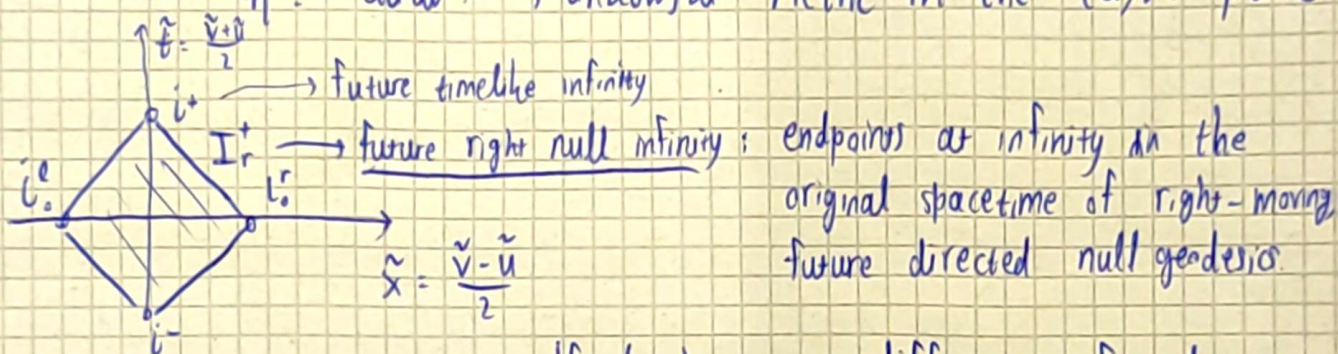 t̃ = (ṽ+ũ)/2
i⁺ → future timelike infinity
I⁺ᵣ → future right null infinity : endpoints at infinity in the
original spacetime of right-moving
future directed null geodesics.
i₀ˡ
i₀ʳ
x̃ = (ṽ-ũ)/2
i⁻